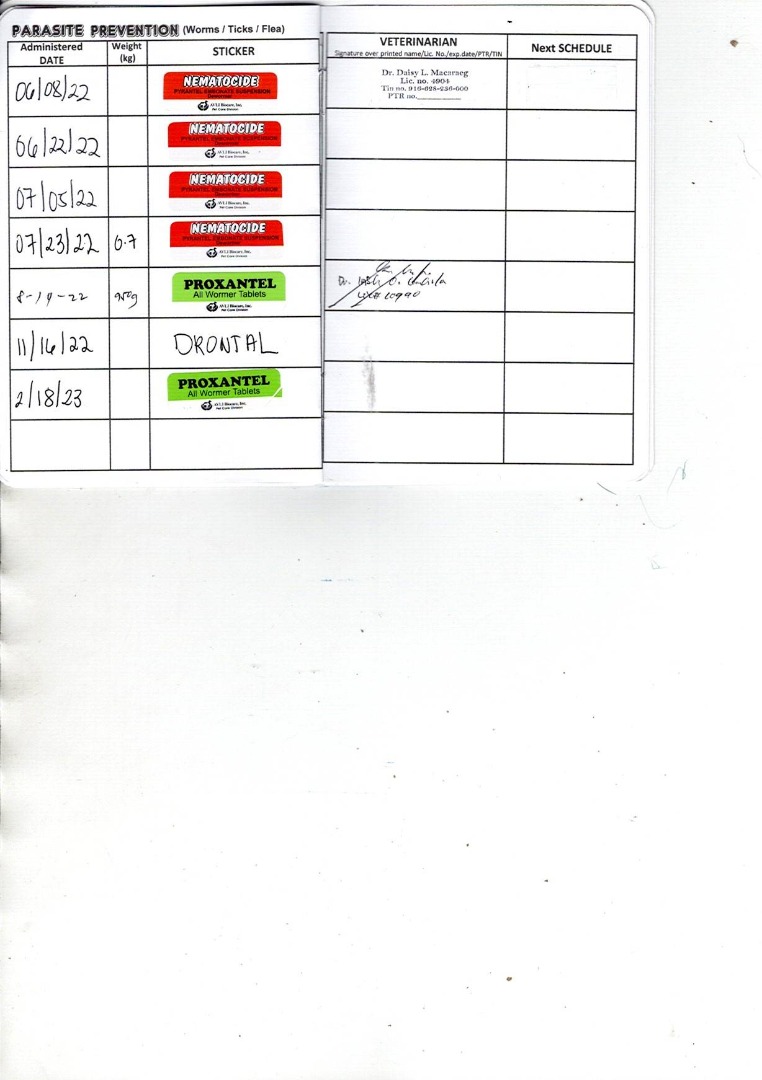 PARASITE PREVENTION (Worms / Ticks / Flea)
Administered DATE
Weight (kg)
STICKER
VETERINARIAN
Signature over printed name/Lic. No./exp.date/PTR/TIN
Next SCHEDULE
06/08/22
NEMATOCIDE
PYRANTEL EMBONATE SUSPENSION
Dewormer
AVLI Biocare, Inc.
Pet Care Division
Dr. Daisy L. Macaraeg
Lic. no. 4904
Tin no. 916-628-236-000
PTR no.
06/22/22
NEMATOCIDE
PYRANTEL EMBONATE SUSPENSION
AVLI Biocare, Inc.
Pet Care Division
07/05/22
NEMATOCIDE
PYRANTEL EMBONATE SUSPENSION
Dewormer
AVLI Biocare, Inc.
Pet Care Division
07/23/22
0.7
NEMATOCIDE
PYRANTEL EMBONATE SUSPENSION
Dewormer
AVLI Biocare, Inc.
Pet Care Division
8-19-22
PROXANTEL
All Wormer Tablets
AVLI Biocare, Inc.
Pet Care Division
Dr.
11/16/22
DRONTAL
2/18/23
PROXANTEL
All Wormer Tablets
AVLI Biocare, Inc.
Pet Care Division